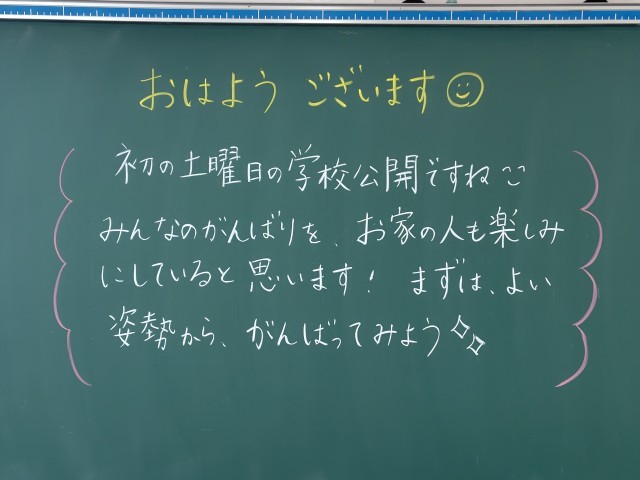 おはよう ございます☺
初の土曜日の学校公開ですね
みんなのがんばりを、お家の人も楽しみ
にしていると思います! まずは、よい
姿勢から、がんばってみよう